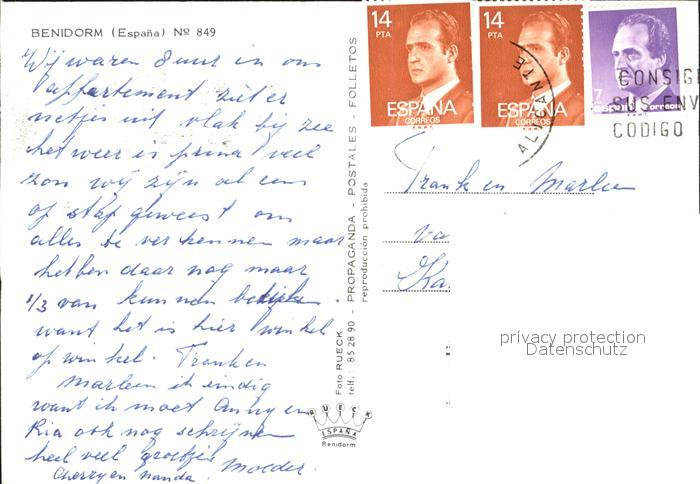 BENIDORM (España) Nº 849
Wij waren 8 uur in ons
appartement ziet er
netjes uit vlak bij zee
het weer is prima veel
zon wij zijn al eens
op stap geweest om
alles te verkennen maar
hebben daar nog maar
1/3 van kunnen bekijken.
want het is hier winkel
op winkel. Frank en
Marleen ik eindig
want ik moet Anny en
Ria ook nog schrijven
heel veel groetjes
Cherry en Nanda. Moeder.
Foto RUECK - PROPAGANDA - POSTALES - FOLLETOS
telf.: 85 28 90 - reproducción prohibida
RUECK
ESPAÑA
Benidorm
14
PTA
ESPAÑA
CORREOS
F.N.M.T.
14
PTA
ESPAÑA
CORREOS
F.N.M.T.
7
España Correos
ALICANTE
CONSIG
SUS ENV
CODIGO
Frank en Marleen
va
Ka
privacy protection
Datenschutz